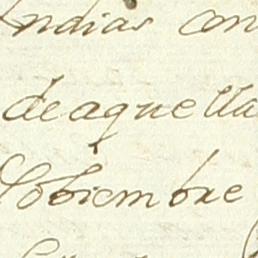 Indias con
deaquella
Nobiembre